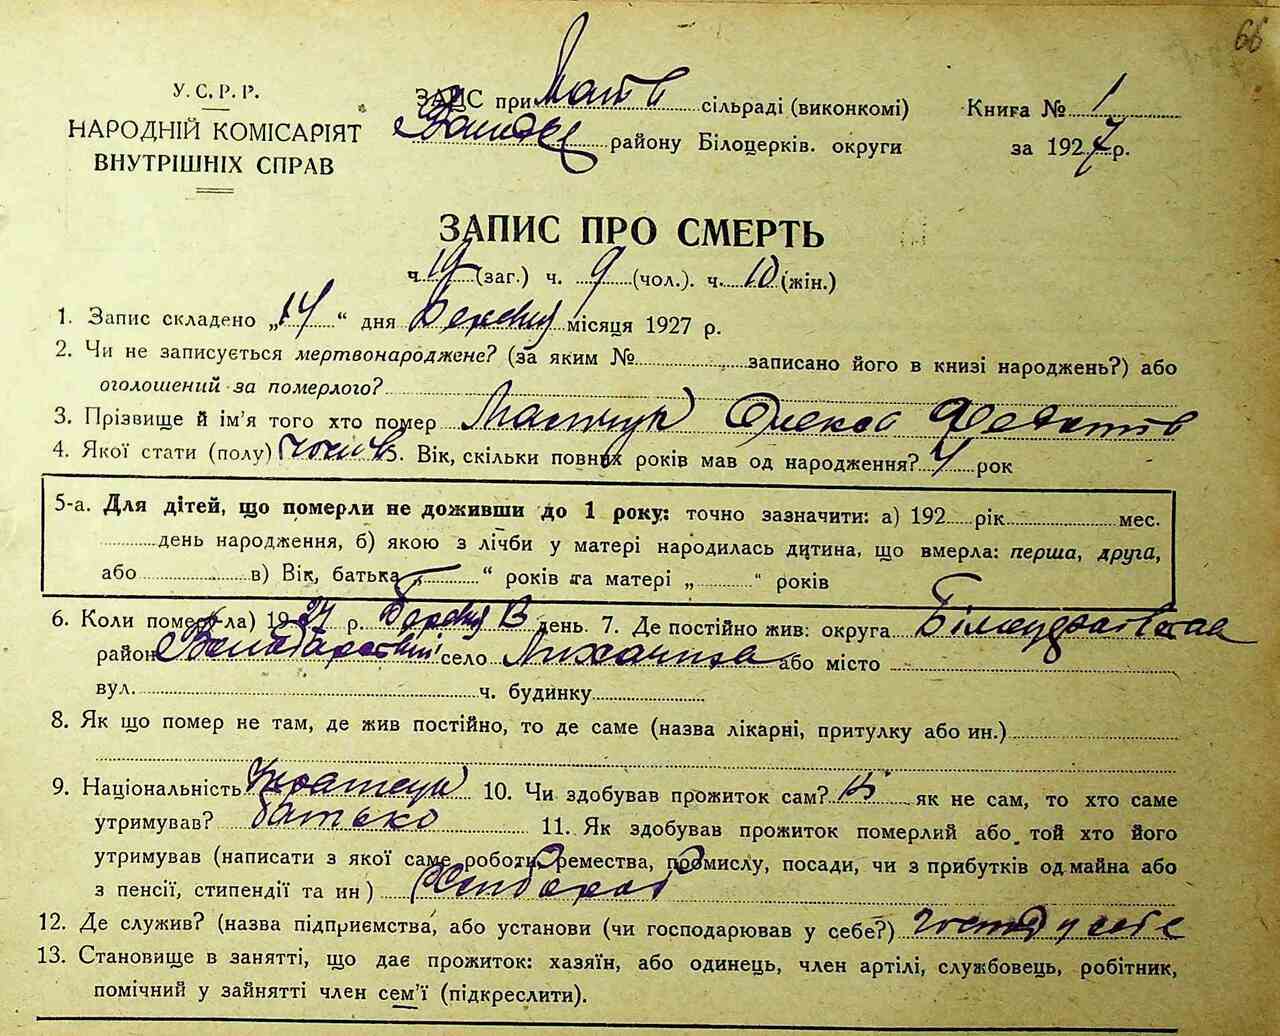 66
У.С.Р.Р.
НАРОДНІЙ КОМІСАРІЯТ
ВНУТРІШНІХ СПРАВ
ЗАПИС при сільраді (виконкомі)
району Білоцерків. округи
Книга № 1
за 1927 р.
ЗАПИС ПРО СМЕРТЬ
ч. 19 (заг.) ч. 9 (чол.). ч. 10 (жін.)
1. Запис складено „14“ дня Березня місяця 1927 р.
2. Чи не записується мертвонароджене? (за яким № записано його в книзі народжень?) або
оголошений за померлого?
3. Прізвище й ім'я того хто помер Олекса
4. Якої стати (полу) чолов. Вік, скільки повних років мав од народження? рок
5-а. Для дітей, що померли не доживши до 1 року: точно зазначити: а) 192 рік мес.
день народження, б) якою з лічби у матері народилась дитина, що вмерла: перша, друга,
або в) Вік, батька „ “ років та матері „ “ років
6. Коли помер(-ла) 1927 р. Березня 13 день. 7. Де постійно жив: округа Білоцерківська
район Володарський село Лихачиха або місто
вул. ч. будинку
8. Як що помер не там, де жив постійно, то де саме (назва лікарні, притулку або ин.)
9. Національність 10. Чи здобував прожиток сам? ні як не сам, то хто саме
утримував? батько 11. Як здобував прожиток померлий або той хто його
утримував (написати з якої саме роботи, ремества, промислу, посади, чи з прибутків од майна або
з пенсії, стипендії та ин) Хлібороб
12. Де служив? (назва підприємства, або установи (чи господарював у себе?) господ у себе
13. Становище в занятті, що дає прожиток: хазяїн, або одинець, член артілі, службовець, робітник,
помічний у зайнятті член сем'ї (підкреслити).